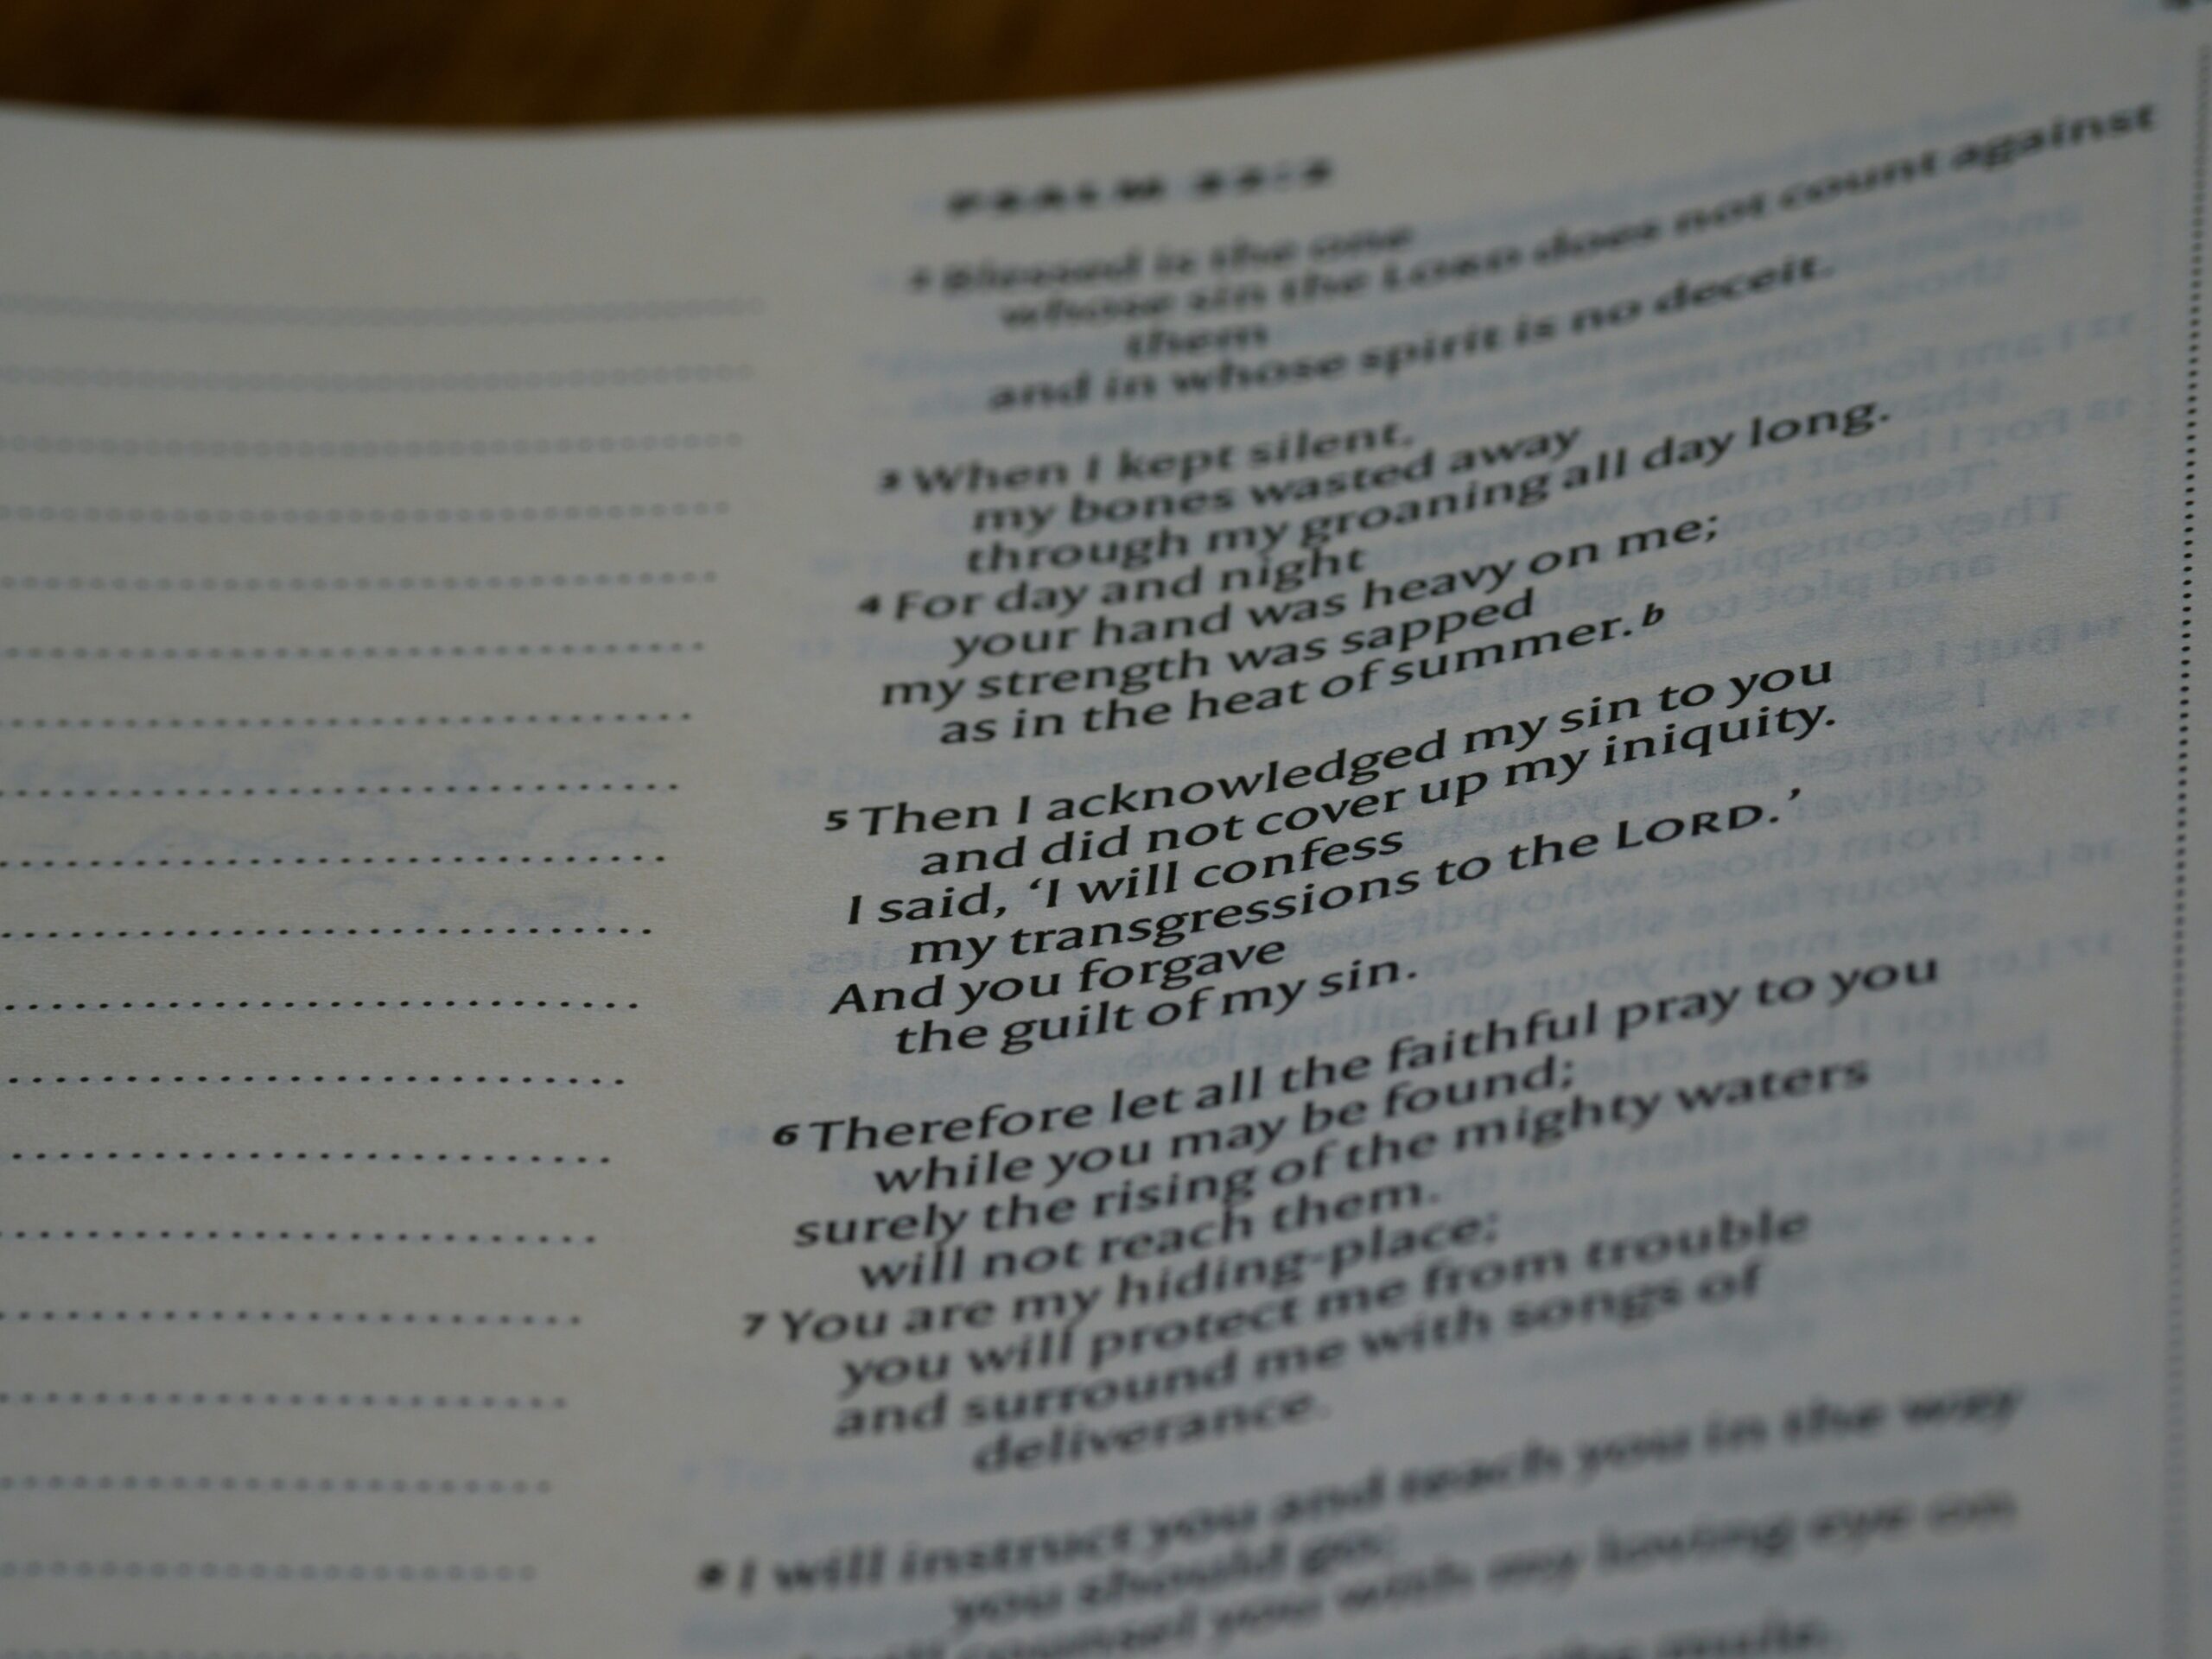 PSALM 32:2
2 Blessed is the one
whose sin the LORD does not count against
them
and in whose spirit is no deceit.
3 When I kept silent,
my bones wasted away
through my groaning all day long.
4 For day and night
your hand was heavy on me;
my strength was sapped
as in the heat of summer.b
5 Then I acknowledged my sin to you
and did not cover up my iniquity.
I said, ‘I will confess
my transgressions to the LORD.’
And you forgave
the guilt of my sin.
6 Therefore let all the faithful pray to you
while you may be found;
surely the rising of the mighty waters
will not reach them.
7 You are my hiding-place;
you will protect me from trouble
and surround me with songs of
deliverance.
8 I will instruct you and teach you in the way
you should go;
counsel you with my loving eye on